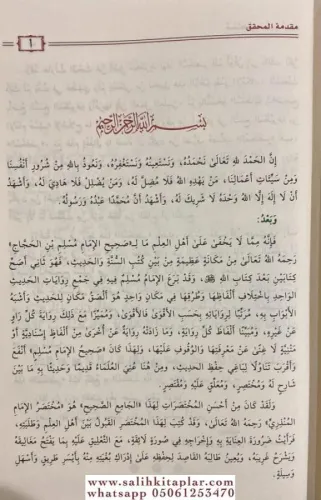 مقدمة المحقق
أ
بِسْمِ اللَّهِ الرَّحْمَنِ الرَّحِيمِ
إِنَّ الحَمْدَ للهِ تَعَالَىٰ نَحْمَدُهُ، وَنَسْتَعِينُهُ وَنَسْتَغْفِرُهُ، وَنَعُوذُ بِاللهِ مِنْ شُرُورِ أَنْفُسِنَا
وَمِنْ سَيِّئَاتِ أَعْمَالِنَا، مَنْ يَهْدِهِ اللهُ فَلَا مُضِلَّ لَهُ، وَمَنْ يُضْلِلْ فَلَا هَادِيَ لَهُ، وَأَشْهَدُ
أَنْ لَا إِلَهَ إِلَّا اللهُ وَحْدَهُ لَا شَرِيكَ لَهُ، وَأَشْهَدُ أَنَّ مُحَمَّدًا عَبْدُهُ وَرَسُولُهُ.
وَبَعْدُ:
فَإِنَّهُ مِمَّا لَا يَخْفَىٰ عَلَىٰ أَهْلِ العِلْمِ مَا لِـ«صَحِيحِ الإِمَامِ مُسْلِمِ بْنِ الحَجَّاجِ»
رَحِمَهُ اللهُ تَعَالَىٰ مِنْ مَكَانَةٍ عَظِيمَةٍ مِنْ بَيْنِ كُتُبِ السُّنَّةِ وَالحَدِيثِ، فَهُوَ ثَانِي أَصَحِّ
كِتَابَيْنِ بَعْدَ كِتَابِ اللهِ ﷻ، وَقَدْ بَرَعَ الإِمَامُ مُسْلِمٌ فِيهِ فِي جَمْعِ رِوَايَاتِ الحَدِيثِ
الوَاحِدِ بِاخْتِلَافِ أَلْفَاظِهَا وَطُرُقِهَا فِي مَكَانٍ وَاحِدٍ هُوَ أَلْصَقُ مَكَانٍ لِلحَدِيثِ وَأَشْبَهُ
الأَبْوَابِ بِهِ، مُرَتِّبًا لِرِوَايَاتِهِ بِحَسَبِ الأَقْوَىٰ، فَالأَقْوَىٰ، وَمُمَيِّزًا مَعَ ذَلِكَ رِوَايَةَ كُلِّ رَاوٍ
عَنْ غَيْرِهِ، وَمُبَيِّنًا أَلْفَاظَ كُلِّ رِوَايَةٍ، وَمَا زَادَتْهُ رِوَايَةٌ عَنْ أُخْرَىٰ مِنْ أَلْفَاظٍ إِسْنَادِيَّةٍ أَوْ
مَتْنِيَّةٍ لَا غِنَىٰ عَنْ مَعْرِفَتِهَا وَالوُقُوفِ عَلَيْهَا، وَلِهَذَا كَانَ «صَحِيحُ الإِمَامِ مُسْلِمٍ» أَنْفَعَ
وَأَقْرَبَ تَنَاوُلًا لِبَاغِي حِفْظِ الحَدِيثِ، وَمِنْ هُنَا عُنِيَ العُلَمَاءُ قَدِيمًا وَحَدِيثًا بِهِ مَا بَيْنَ
شَارِحٍ لَهُ وَمُخْتَصِرٍ، وَمُعَلِّقٍ عَلَيْهِ وَمُقْتَصِرٍ.
وَلَقَدْ كَانَ مِنْ أَحْسَنِ المُخْتَصَرَاتِ لِهَذَا «الجَامِعِ الصَّحِيحِ» هُوَ «مُخْتَصَرُ الإِمَامِ
المُنْذِرِيِّ» رَحِمَهُ اللهُ تَعَالَىٰ، وَقَدْ كُتِبَ لِهَذَا المُخْتَصَرِ القَبُولُ بَيْنَ أَهْلِ العِلْمِ وَطَلَبَتِهِ،
فَرَأَيْتُ ضَرُورَةَ العِنَايَةِ بِهِ وَإِخْرَاجِهِ فِي صُورَةٍ لَائِقَةٍ، مَعَ التَّعْلِيقِ عَلَيْهِ بِمَا يَفْتَحُ مَغَالِيقَهُ
وَيَشْرَحُ غَرِيبَهُ، وَيُعِينُ طَالِبَهُ القَاصِدَ لِحِفْظِهِ عَلَىٰ إِدْرَاكِ بُغْيَتِهِ مِنْهُ بِأَيْسَرِ طَرِيقٍ وَأَسْهَلِ
وَسِيلَةٍ.
www.salihkitaplar.com
whatsapp 05061253470